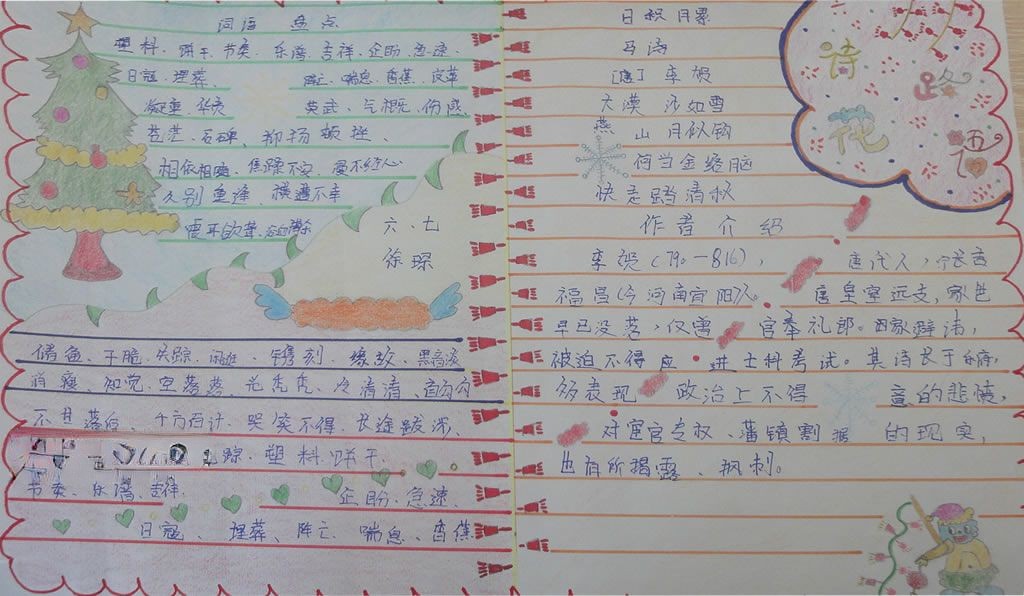 词语 盘点
塑料、饼干、节奏、乐谱、吉祥、企盼、急速、
日寇、埋葬、阵亡、喘息、香蕉、皮革
凝重、华贵 英武、气概、伤感
苍茫、石碑、抑扬顿挫、
相依相随、焦躁不安、漫不经心
久别重逢、横遭不幸
震耳欲聋、
六、七
徐琛
储备、干脆、失踪、闲逛、镌刻、缘故、黑
消瘦、知觉、空荡荡、光秃秃、冷清清、直勾勾
不甘落后、千方百计、哭笑不得、长途跋涉、
踪、塑料、饼干
节奏、乐谱、吉祥、企盼、急速、
日寇、埋葬、阵亡、喘息、香蕉
日积月累
马诗
[唐] 李贺
大漠沙如雪
燕山月似钩
何当金络脑
快走踏清秋
作者介绍
李贺(790—816), 唐代人,
福昌(今河南宜阳)人。唐皇室远支,家世
早已没落,仅曾官奉礼郎。因家避讳,
被迫不得应进士科考试。其诗长于
多表现政治上不得意的悲愤,
对宦官专权、藩镇割据的现实,
也有所揭露、讽刺。
诗
路
花
语